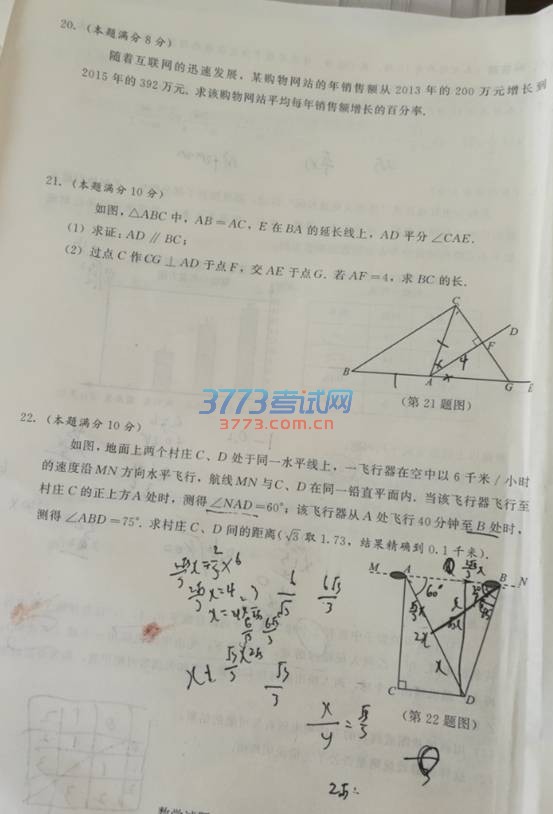 20. (本题满分8分)
随着互联网的迅速发展，某购物网站的年销售额从2013年的200万元增长到
2015年的392万元. 求该购物网站平均每年销售额增长的百分率.
21. (本题满分10分)
如图，△ABC中，AB=AC，E在BA的延长线上，AD平分∠CAE.
(1) 求证：AD∥BC；
(2) 过点C作CG⊥AD于点F，交AE于点G. 若AF=4，求BC的长.
C
D
F
4
x
B
1
A
x
G
E
(第21题图)
3773考试网
3773.com.cn
22. (本题满分10分)
如图，地面上两个村庄C、D处于同一水平线上，一飞行器在空中以6千米/小时
的速度沿MN方向水平飞行，航线MN与C、D在同一铅直平面内. 当该飞行器飞行至
村庄C的正上方A处时，测得∠NAD=60°；该飞行器从A处飞行40分钟至B处时，
测得∠ABD=75°. 求村庄C、D间的距离(√3取1.73，结果精确到0.1千米).
M
A
B
N
60°
2x
x
C
D
(第22题图)
x=4
6
√3
6√3
3
√3
3
x
y
=
√3
3